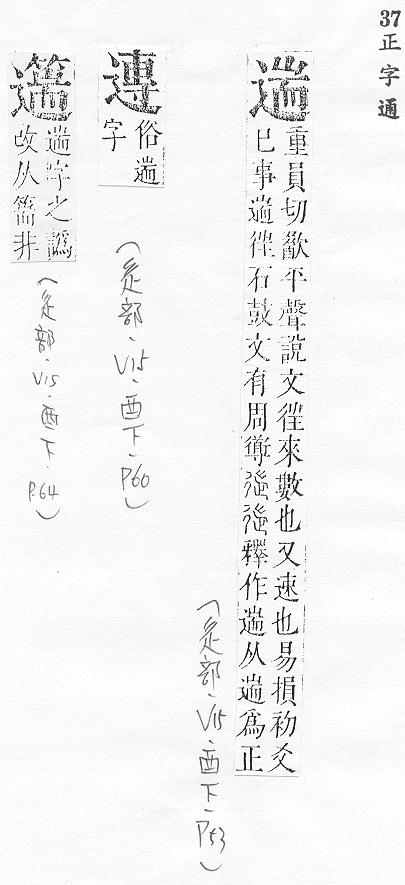 37
正字通
遄
重員切歂平聲說文徃來數也又速也易損初爻
巳事遄徃石鼓文有周導釋作遄从遄爲正
(辵部、V15、酉下、P53)
俗遄
字
(辵部、V15、酉下、P60)
遄字之譌
改从篅非
(辵部、V15、酉下、P64)